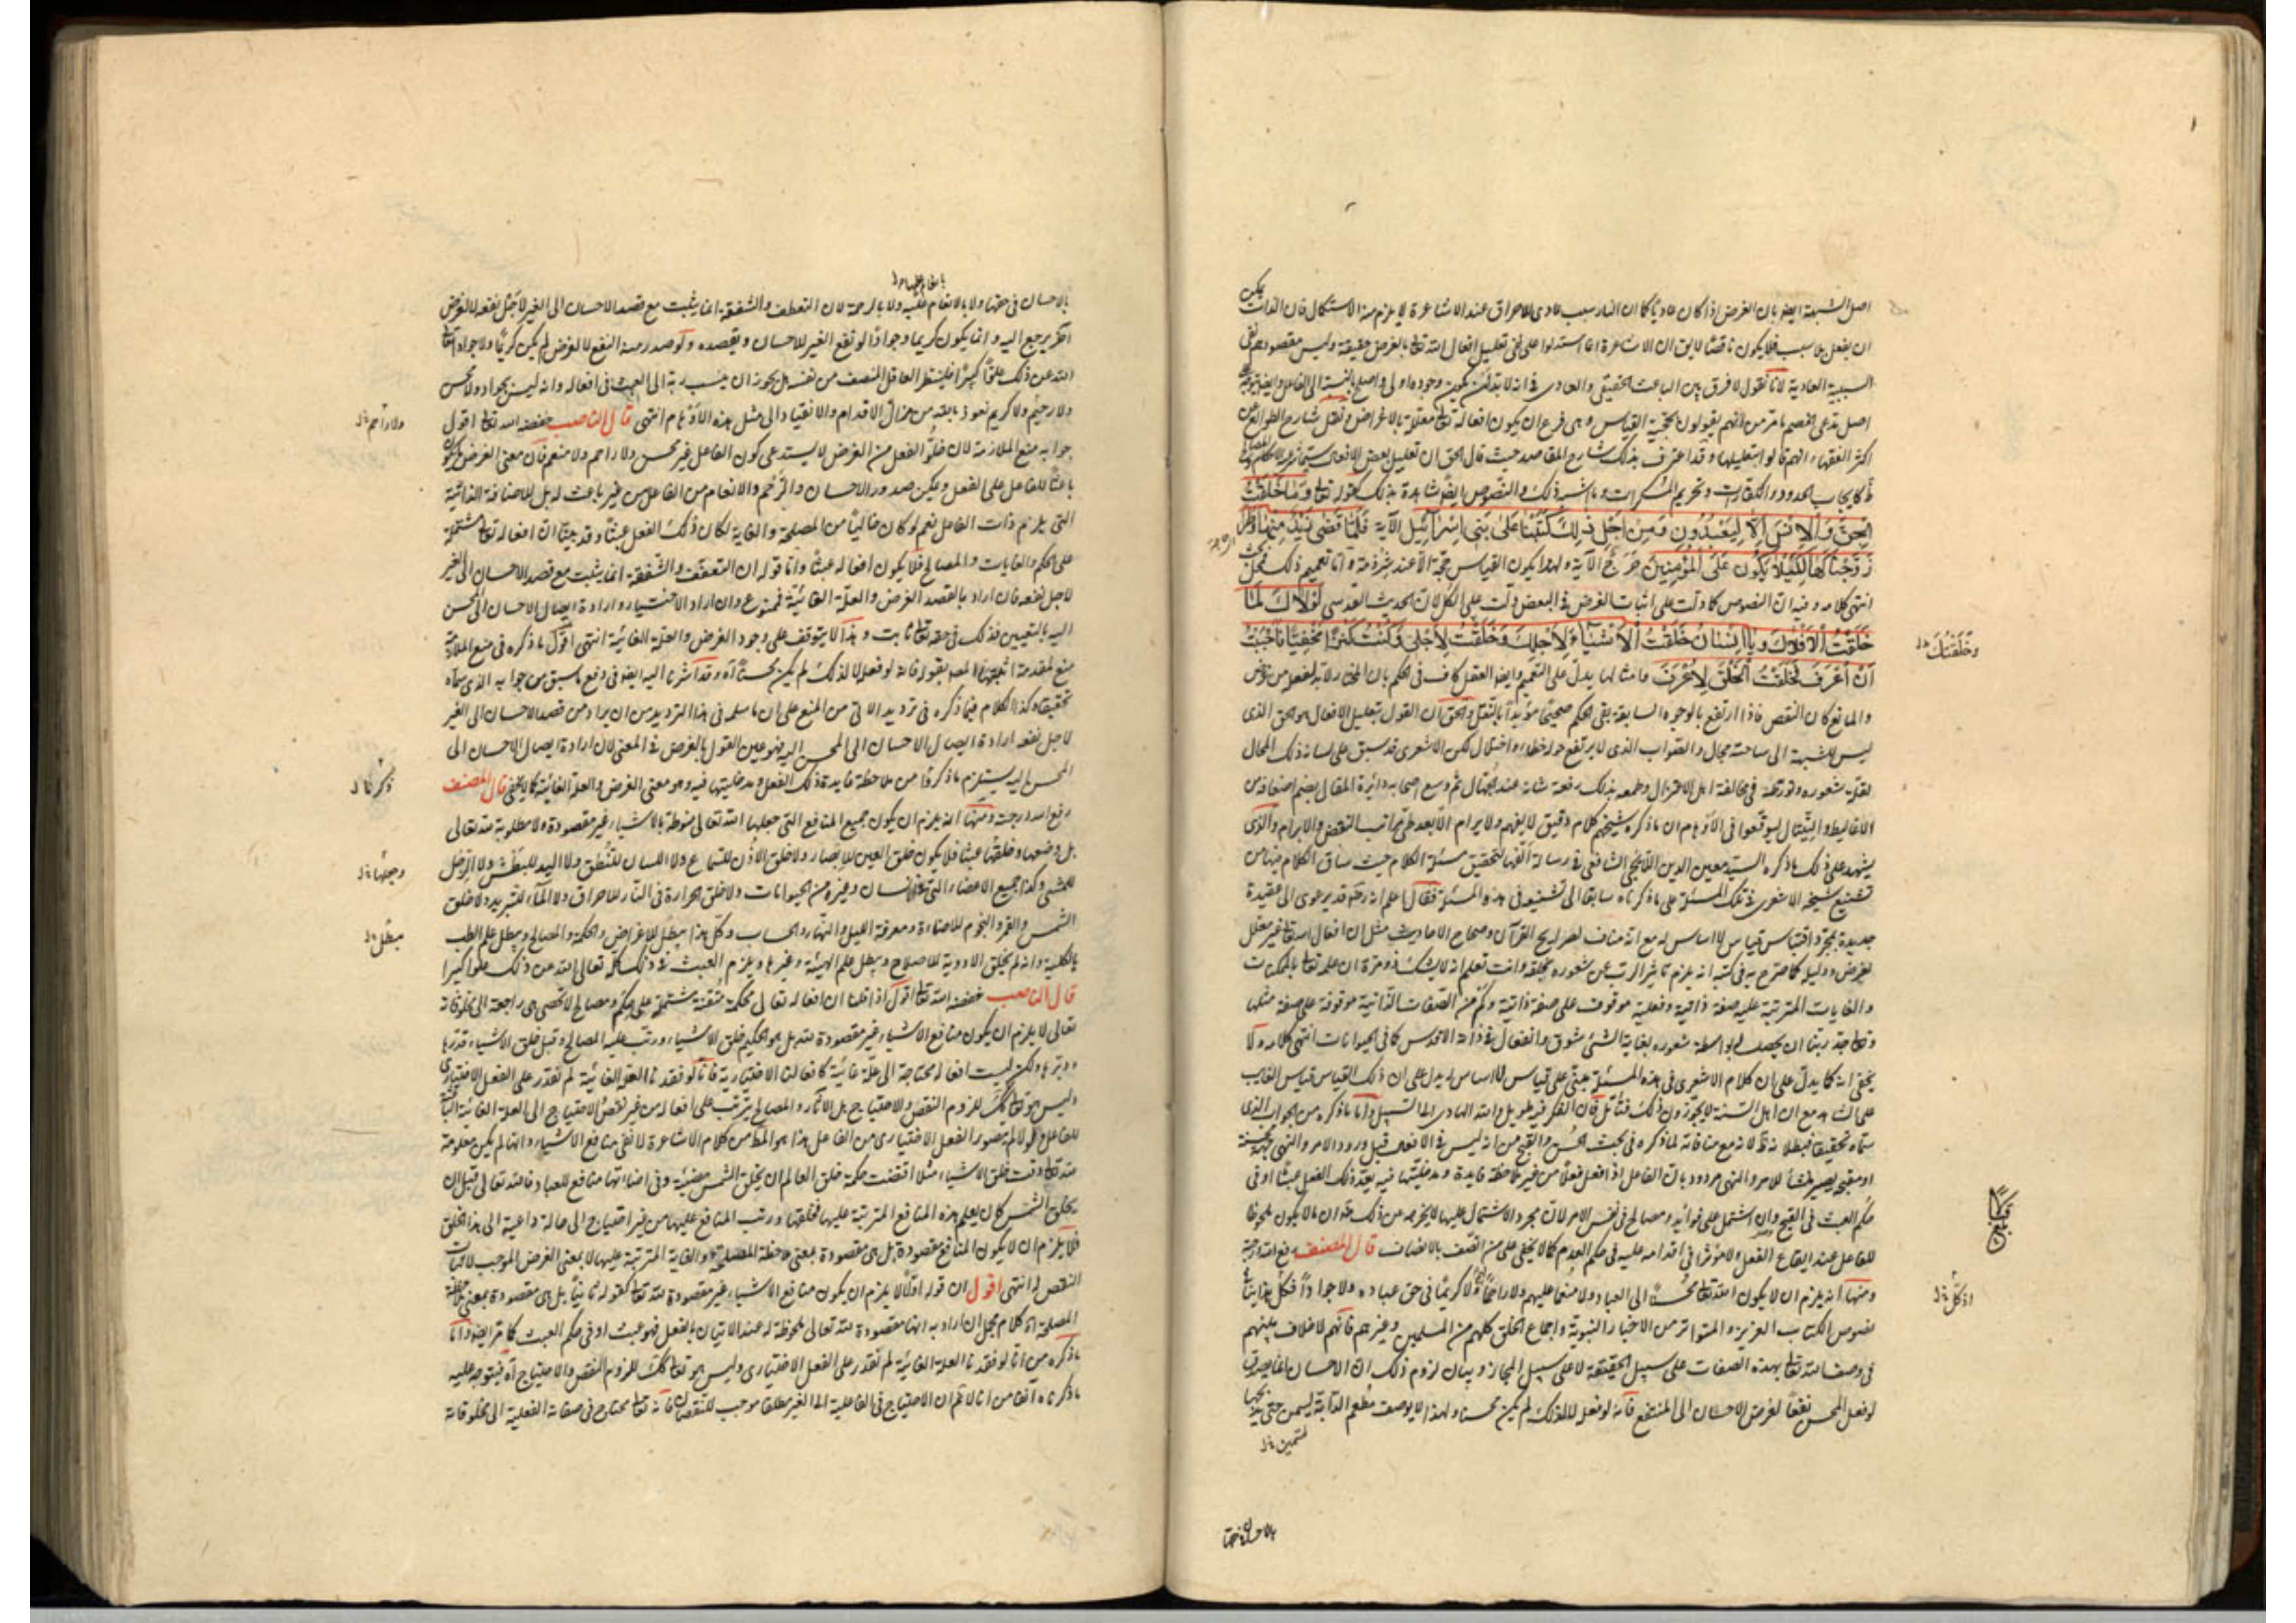 اصل الشبهة ايضا بان الغرض اذا كان عاديا كما ان النار سبب عادى للاحراق عند الاشاعرة لا يلزم منه الاستكمال فان الذات يمكن
ان يفعل بلا سبب فلا يكون ناقصا لان الاشاعرة انما استدلوا على نفى تعليل افعال الله تعالى بالغرض حقيقة وليس مقصودهم نفى
السببية العادية لانا نقول لا فرق بين الباعث الحقيقى والعادى فى انه لا بد ان يكون وجوده اولى واصلح بالنسبة الى الفاعل
اصل تدعى الخصم ما مر من انهم يقولون بحجية القياس وهى فرع ان يكون افعاله تعالى معللة بالاغراض ونقل شارح الطوالع عن
اكثر الفقهاء انهم قالوا بتعليلها وقد اعترف بذلك شارح المقاصد حيث قال الحق ان تعليل بعض الافعال سيما شرعية الاحكام
كايجاب الحدود والكفارات وتحريم المسكرات وما اشبه ذلك والنصوص ايضا شاهدة بذلك كقوله تعالى وَمَا خَلَقْتُ
الْجِنَّ وَالْاِنْسَ اِلَّا لِيَعْبُدُونِ وَمِنْ اَجْلِ ذٰلِكَ كَتَبْنَا عَلىٰ بَنِى اِسْرَائِيلَ الآية فَلَمَّا قَضىٰ زَيْدٌ مِنْهَا وَطَرًا
زَوَّجْنَاكَهَا لِكَيْلَا يَكُونَ عَلَى الْمُؤْمِنِينَ حَرَجٌ الآية ولهذا يكون القياس حجة الا عند شرذمة واما تعميم ذلك فمحل بحث
انتهى كلامه وفيه ان النصوص كما دلت على اثبات الغرض فى البعض دلت على الكل لان الحديث القدسى لَوْلَاكَ لَمَا
خَلَقْتُ الْاَفْلَاكَ وَيَا اِنْسَانُ خَلَقْتُ الْاَشْيَاءَ لِاَجْلِكَ وَخَلَقْتُ لِاَجْلِى وَكُنْتُ كَنْزًا مَخْفِيًّا فَاَحْبَبْتُ
اَنْ اُعْرَفَ فَخَلَقْتُ الْخَلْقَ لِاُعْرَفَ وامثالها يدل على التعميم وايضا العقل كاف فى الحكم بان المختار لا بد لفعله من غرض
والمانع كان النقص فاذا ارتفع بالوجوه السابقة بقى الحكم صحيحا مؤيدا بالنقل والحق ان القول بتعليل الافعال هو الحق الذى
ليس للشبهة الى ساحته مجال والصواب الذى لا يرتفع حوله خطاء واختلال لكن الاشعرى قد سبق على لسانه ذلك المحال
لقلة شعوره وتورطه فى مخالفة اهل الاعتزال وطمعه بذلك رفعة شانه عند الجهال ثم وسع اصحابه دائرة المقال بضم اضعافه من
الاغاليط ليوقعوا فى الاوهام ان ما ذكره شيخهم كلام دقيق لا يفهم ولا يرام الا بعد طى مراتب النقض والابرام والذى
يشهد على ذلك ما ذكره السيد معين الدين الايجى الشافعى فى رسالة الفها لتحقيق مسئلة الكلام حيث ساق الكلام فيها من
تشنيع شيخه الاشعرى فى تلك المسئلة على ما ذكرناه سابقا الى تشنيعه فى هذه المسئلة فقال اعلم انه رحمه قد يرعوى الى عقيدة
جديدة بمجرد اقتباس قياس لا اساس له مع انه مناف لصرايح القرآن وصحاح الاحاديث مثل ان افعال الله تعالى غير معلل
لغرض ودليله كما صرح به فى كتبه انه يلزم تاثر الرب عن شعوره بخلقه وانت تعلم انه لا يشك ذو مرة ان علمه تعالى بالممكنات
والغايات المترتبة عليه صفة ذاتية وفعلية موقوف على صفة ذاتية وكم من الصفات الذاتية موقوفة على صفة مثلها
وتعالى جد ربنا ان يحصل له بواسطة شعوره بغاية الشئ شوق وانفعال فى ذاته الاقدس كما فى الحيوانات انتهى كلامه ولا
يخفى انه كما يدل على ان كلام الاشعرى فى هذه المسئلة مبنى على قياس لا اساس له يدل على ان ذلك القياس قياس الغايب
على الشاهد مع ان اهل السنة لا يجوزون ذلك فتأمل فان الفكر فيه طويل والله الهادى الى السبيل واما ما ذكره من الجواب الذى
سماه تحقيقا فبطلانه ظ لانه مع منافاته لما ذكره فى بحث الحسن والقبح من انه ليس فى الافعال قبل ورود الامر والنهى جهة محسنة
او مقبحة يصير منشأ للامر والنهى مردود بان الفاعل اذا فعل فعلا من غير ملاحظة فايدة ومدخليتها فيه يعد ذلك الفعل عبثا او فى
حكم العبث فى القبح وان اشتمل على فوائد ومصالح فى نفس الامر لان مجرد الاشتمال عليها لا يخرجه عن ذلك ضرورة ان ما لا يكون ملحوظا
للفاعل عند ايقاع الفعل ولا مؤثرا فى اقدامه عليه فى حكم العدم كما لا يخفى على من اتصف بالانصاف قال المصنف رفع الله درجته
ومنها انه يلزم ان لا يكون الله تعالى محسنا الى العباد ولا منعما عليهم ولا راحما ولا كريما فى حق عباده ولا جوادا فكل هذا ينافى
نصوص الكتاب العزيز والمتواتر من الاخبار النبوية واجماع الخلق كلهم من المسلمين وغيرهم فانهم لا خلاف بينهم
فى وصف الله تعالى بهذه الصفات على سبيل الحقيقة لا على سبيل المجاز وبيان لزوم ذلك ان الاحسان انما يصدق
لو فعل المحسن نفعا لغرض الاحسان الى المنتفع فانه لو فعله لا لذلك لم يكن محسنا ولهذا لا يوصف مطعم الدابة ليسمن حتى يذبحها
وخلقتك
بلغ
بالاحسان فى حقها
بالاحسان فى حقها ولا بالانعام عليها ولا بالرحمة لان التعطف والشفقة انما يثبت مع قصد الاحسان الى الغير لاجل نفعه لا لغرض
آخر يرجع اليه وانما يكون كريما وجوادا لو نفع الغير للاحسان ويقصده ولو صدر منه النفع لا لغرض لم يكن كريما ولا جوادا تعالى
الله عن ذلك علوا كبيرا فلينظر العاقل المنصف من نفسه هل يجوز ان ينسب ربه الى العبث فى افعاله وانه ليس بجواد ولا محسن
ولا رحيم ولا كريم نعوذ بالله من مزال الاقدام والانقياد الى مثل هذه الاوهام انتهى قال الناصب خفضه الله تعالى اقول
جوابه منع الملازمة لان خلو الفعل من الغرض لا يستدعى كون الفاعل غير محسن ولا راحم ولا منعم فان معنى الغرض ما يكون
باعثا للفاعل على الفعل ويمكن صدور الاحسان والرحم والانعام من الفاعل من غير باعث له بل للاضافة الذاتية
التى يلزم ذات الفاعل نعم لو كان خاليا من المصلحة والغاية لكان ذلك الفعل عبثا وقد بينا ان افعاله تعالى مشتملة
على الحكم والغايات والمصالح فلا يكون افعاله عبثا واما قوله ان التعطف والشفقة انما يثبت مع قصد الاحسان الى الغير
لاجل نفعه فان اراد بالقصد الغرض والعلة الغائية فممنوع وان اراد الاختيار وارادة ايصال الاحسان الى المحسن
اليه بالتعيين فذلك فى حقه تعالى ثابت وهذا لا يتوقف على وجود الغرض والعلة الغائية انتهى اقول ما ذكره فى منع الملازمة
منع لمقدمة اثبتها المصنف بقوله فانه لو فعله لا لذلك لم يكن محسنا آه وقد اشرنا اليه ايضا فى دفع ما سبق من جوابه الذى سماه
تحقيقا وكذا الكلام فيما ذكره فى ترديد الآتى من المنع على ان ما سلمه فى هذا الترديد من ان يراد من قصد الاحسان الى الغير
لاجل نفعه ارادة ايصال الاحسان الى المحسن اليه هو عين القول بالغرض فى المعنى لان ارادة ايصال الاحسان الى
المحسن اليه يستلزم ما ذكرنا من ملاحظة فايدة ذلك الفعل ومدخليتها فيه وهو معنى الغرض والعلة الغائية كما لا يخفى قال المصنف
رفع الله درجته ومنها انه يلزم ان يكون جميع المنافع التى جعلها الله تعالى منوطة بالاشياء غير مقصودة ولا مطلوبة لله تعالى
بل وضعها وخلقها عبثا فلا يكون خلق العين للابصار ولا خلق الاذن للسماع ولا اللسان للنطق ولا اليد للبطش ولا الرجل
للمشى وكذا جميع الاعضاء التى للانسان وغيره من الحيوانات ولا خلق الحرارة فى النار للاحراق ولا الماء للتبريد ولا خلق
الشمس والقمر والنجوم للاضاءة ومعرفة الليل والنهار والحساب وكل هذا مبطل للاغراض والحكمة والمصالح ويبطل علم الطب
بالكلية وانه لم يخلق الادوية للاصلاح ويبطل علم الهيئة وغيرها ويلزم العبث فى ذلك كله تعالى الله عن ذلك علوا كبيرا
قال الناصب خفضه الله تعالى اقول اذا قلنا ان افعاله تعالى محكمة متقنة مشتملة على حكم ومصالح لا تحصى هى راجعة الى مخلوقاته
تعالى لا يلزم ان يكون منافع الاشياء غير مقصودة لله بل هو الحكيم خلق الاشياء ورتب عليه المصالح وقبل خلق الاشياء قدرها
ودبرها ولكن ليست افعاله محتاجة الى علة غائية كافعالنا الاختيارية فانا لو فقدنا العلة الغائية لم نقدر على الفعل الاختيارى
وليس هو تعالى كذلك للزوم النقص والاحتياج بل الآثار والمصالح يترتب على افعاله من غير نقص الاحتياج الى العلة الغائية الباعثة
للفاعل ولولاه لم يتصور الفعل الاختيارى من الفاعل هذا هو المط من كلام الاشاعرة لا نفى منافع الاشياء وانها لم يكن معلومة
لله تعالى وقت خلق الاشياء مثلا اقتضت حكمة خلق العالم ان يخلق الشمس مضيئة وفى اضاءتها منافع للعباد فالله تعالى قبل ان
يخلق الشمس كان يعلم هذه المنافع المترتبة عليها فخلقها ورتب المنافع عليها من غير احتياج الى حالة داعية الى هذا الخلق
فلا يلزم ان لا يكون المنافع مقصودة بل هى مقصودة بمعنى ملاحظة المصلحة والغاية المترتبة عليها لا بمعنى الغرض الموجب لاثبات
النقص له انتهى اقول ان قوله اولا لا يلزم ان يكون منافع الاشياء غير مقصودة لله تعالى كقوله ثانيا بل هى مقصودة بمعنى ملاحظة
المصلحة آه كلام مجمل ان اراد به انها مقصودة لله تعالى ملحوظة له عند الاتيان بالفعل فهو عبث او فى حكم العبث كما مر ايضا واما
ما ذكره من انا لو فقدنا العلة الغائية لم نقدر على الفعل الاختيارى وليس هو تعالى كذلك للزوم النقص والاحتياج آه فيتوجه عليه
ما ذكرناه آنفا من انا لا نم ان الاحتياج فى الفاعلية الى الغير مطلقا موجب للنقصان فانه تعالى محتاج فى صفاته الفعلية الى مخلوقاته
ولا راحم
وجعلها
مبطل